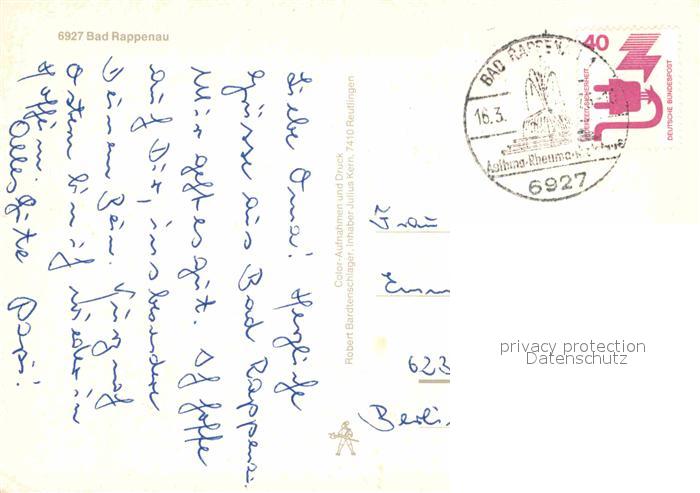 6927 Bad Rappenau
Liebe Oma! Herzliche
Grüsse aus Bad Rappenau.
Mir geht es gut. Ich hoffe
auf Dir, insbesondere
Deinem Bein. Kurz nach
Ostern bin ich wieder in
Hoffm.
Alles Gute Papi!
Color-Aufnahmen und Druck
Robert Bardtenschlager, Inhaber Julius Kern, 7410 Reutlingen
BAD RAPPEN
16.3.
Asthma-Rheuma-
6927
40
DEUTSCHE BUNDESPOST
Frau
Emm
623
Berli
privacy protection
Datenschutz